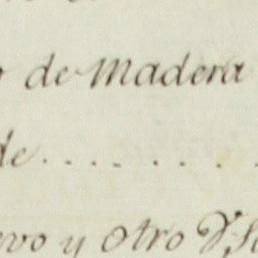 de Madera
de . . . . . . .
evo y otro